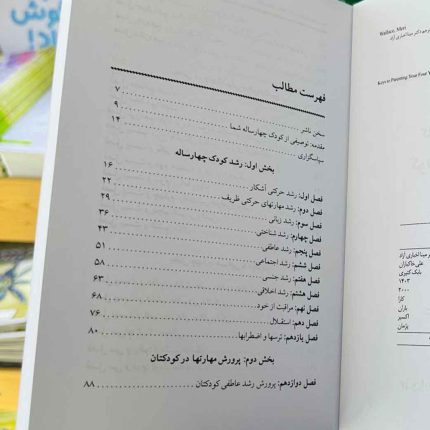 فهرست مطالب
سخن ناشر ۷
مقدمه: توصیفی از کودک چهارساله شما ۹
سپاسگزاری ۱۴
بخش اول: رشد کودک چهارساله
فصل اول: رشد حرکتی آشکار ۱۶
فصل دوم: رشد مهارتهای حرکتی ظریف ۲۲
فصل سوم: رشد زبانی ۲۹
فصل چهارم: رشد شناختی ۳۶
فصل پنجم: رشد عاطفی ۴۳
فصل ششم: رشد اجتماعی ۵۱
فصل هفتم: رشد جنسی ۵۸
فصل هشتم: رشد اخلاقی ۶۳
فصل نهم: مراقبت از خود ۶۸
فصل دهم: استقلال ۷۶
فصل یازدهم: ترسها و اضطرابها ۸۰
بخش دوم: پرورش مهارتها در کودکتان
فصل دوازدهم: پرورش رشد عاطفی کودکتان ۸۸
Wallace, Meri
Keys to Parenting Your Four Y
علی خاکبازان
بابک کثیری
۱۴۰۳
۲۰۰۰
کارا
باران
اکسیر
پژمان